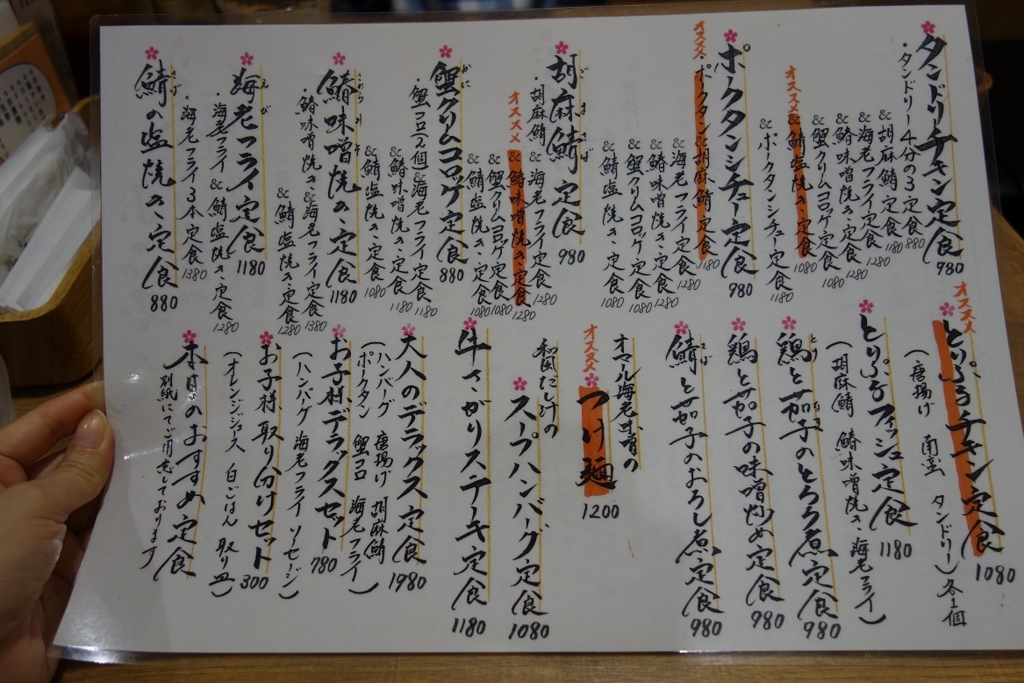 タンドリーチキン定食 980
・タンドリー4分の3定食 880
& 胡麻鯖定食 1280
& 海老フライ定食 1280
& 鰆味噌焼き定食 1280
& 蟹クリームコロッケ定食 1180
オススメ & 鯖塩焼き定食 1080
& ポークタンシチュー定食 1180
ポークタンシチュー定食 980
オススメ ・ポークタン&胡麻鯖定食 1180
& 海老フライ定食 1280
& 鰆味噌焼き定食 1280
& 蟹クリームコロッケ定食 1080
& 鯖塩焼き定食 1080
胡麻鯖定食 980
ごまさば
・胡麻鯖 & 海老フライ定食 1280
オススメ & 鰆味噌焼き定食 1280
& 蟹クリームコロッケ定食 1080
& 鯖塩焼き定食 1080
蟹クリームコロッケ定食 880
かに
・蟹コロ(2個)&海老フライ定食 1180
& 鰆味噌焼き定食 1180
& 鯖塩焼き定食 1080
鰆味噌焼き定食 1180
・鰆味噌焼き&海老フライ定食 1380
& 鯖塩焼き定食 1280
海老フライ定食 1180
えび
・海老フライ&鯖塩焼き定食 1280
・海老フライ3本定食 1380
鯖の塩焼き定食 880
さば
オススメ
とりぷるチキン定食 1080
(唐揚げ 南蛮 タンドリー)各1個
とりぷるフィッシュ定食 1180
(胡麻鯖 鰆味噌焼き 海老フライ)
鶏と茄子のとろろ煮定食 980
鶏と茄子の味噌炒め定食 980
鯖と茄子のおろし煮定食 980
さば
オマール海老味噌の
オススメ つけ麺 1200
和風だし汁の
スープハンバーグ定食 1080
牛さがりステーキ定食 1180
大人のデラックス定食 1980
(ハンバーグ 唐揚げ 胡麻鯖
ポークタン 蟹コロ 海老フライ)
お子様デラックスセット 780
(ハンバーグ 海老フライ ソーセージ)
お子様取り分けセット 300
(オレンジジュース 白ごはん 取り皿)
本日のおすすめ定食
別紙にてご用意しております